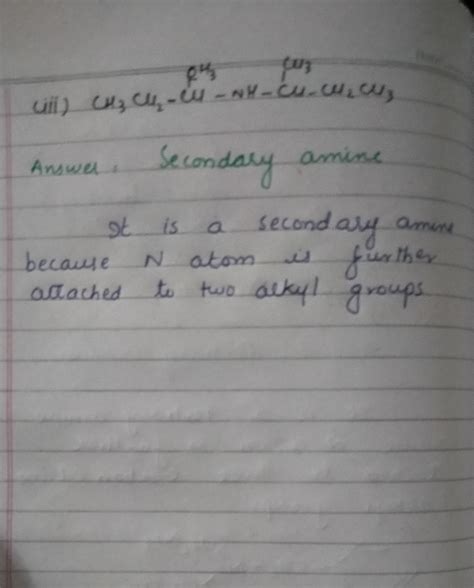 CH3 CH3
(iii) CH3 CH2 - CH - NH - CH - CH2 CH3
Answer : Secondary amine
It is a secondary amine
because N atom is further
attached to two alkyl groups